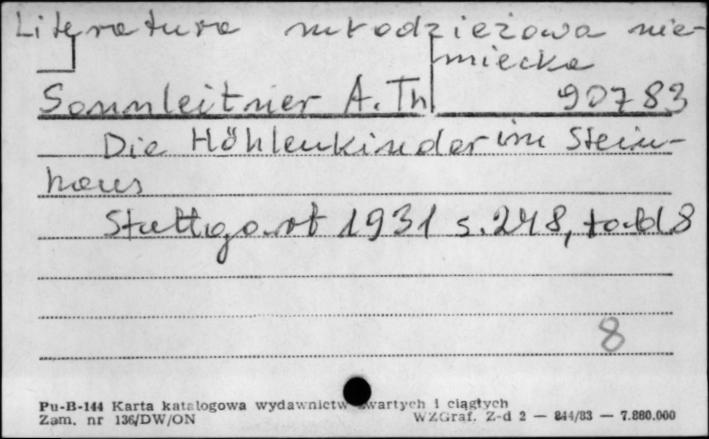 Literatura młodzieżowa nie-
miecka
Sonnleitner A. Th. 90783
Die Höhlenkinder im Stein-
haus
Stuttgart 1931 s. 248, tabl 8
8
Pu-B-144 Karta katalogowa wydawnictw zwartych i ciągłych
Zam. nr 136/DW/ON WZGraf. Z-d 2 — 844/83 — 7.880.000